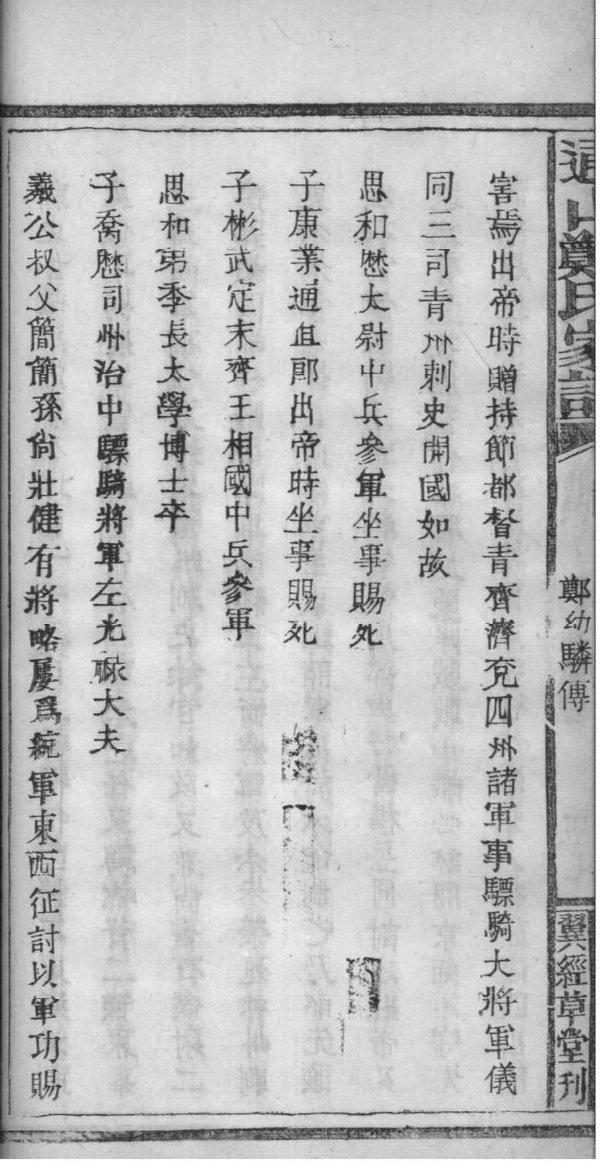 害焉出帝時贈持節都督青齊濟兗四州諸軍事驃騎大將軍儀
同三司青州刺史開國如故
思和歷太尉中兵參軍坐事賜死
子康業通直郎出帝時坐事賜死
子彬武定末齊王相國中兵參軍
思和弟季長太學博士卒
子喬歷司州治中驃騎將軍左光祿大夫
羲公叔父簡簡孫尚壯健有將略屢爲統軍東西征討以軍功賜
鄭氏家譜
鄭幼驎傳
翼經草堂刊